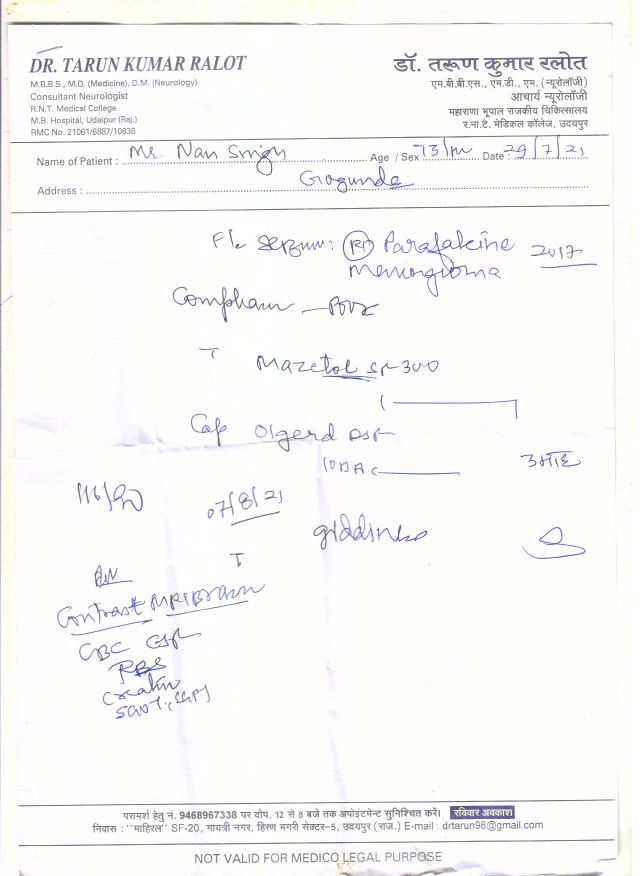 DR. TARUN KUMAR RALOT
M.B.B.S., M.D. (Medicine), D.M. (Neurology)
Consultant Neurologist
R.N.T. Medical College
M.B. Hospital, Udaipur (Raj.)
RMC No. 21061/6887/10838
डॉ. तरूण कुमार रलोत
एम.बी.बी.एस., एम.डी., एम. (न्यूरोलॉजी)
आचार्य न्यूरोलॉजी
महाराणा भूपाल राजकीय चिकित्सालय
र.ना.टै. मेडिकल कॉलेज, उदयपुर
Name of Patient : Mr. Nan Singh Age / Sex 73/m Date : 29/7/21
Address : Gogunda
(Rt) Parafalcine 2017
Meningioma
T Mazetol SR 300
Cap Olgerd DSR
3 माह
116/80 07/8/21
giddiness
Adv
Contrast MRI Brain
CBC ESR
RBS
Creatin
SGOT, SGPT
परामर्श हेतु नं. 9468967338 पर दोप. 12 से 8 बजे तक अपोइंटमेन्ट सुनिश्चित करें। रविवार अवकाश
निवास : "माहिरल" SF-20, गायत्री नगर, हिरण मगरी सेक्टर-5, उदयपुर (राज.) E-mail : drtarun96@gmail.com
NOT VALID FOR MEDICO LEGAL PURPOSE